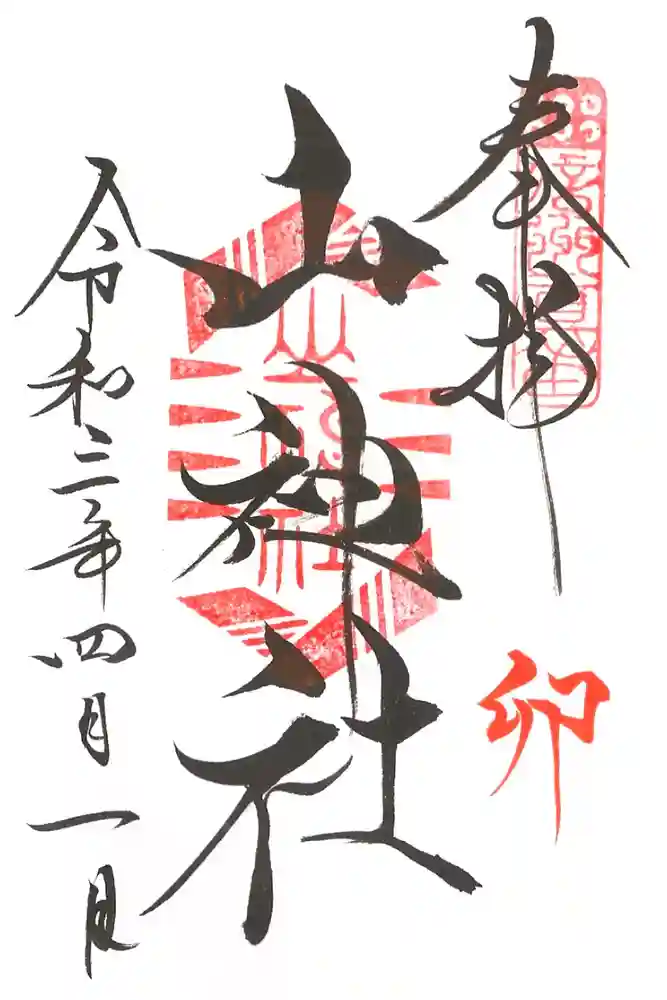 奉拝
卯
山神社
山神社
令和三年四月一日